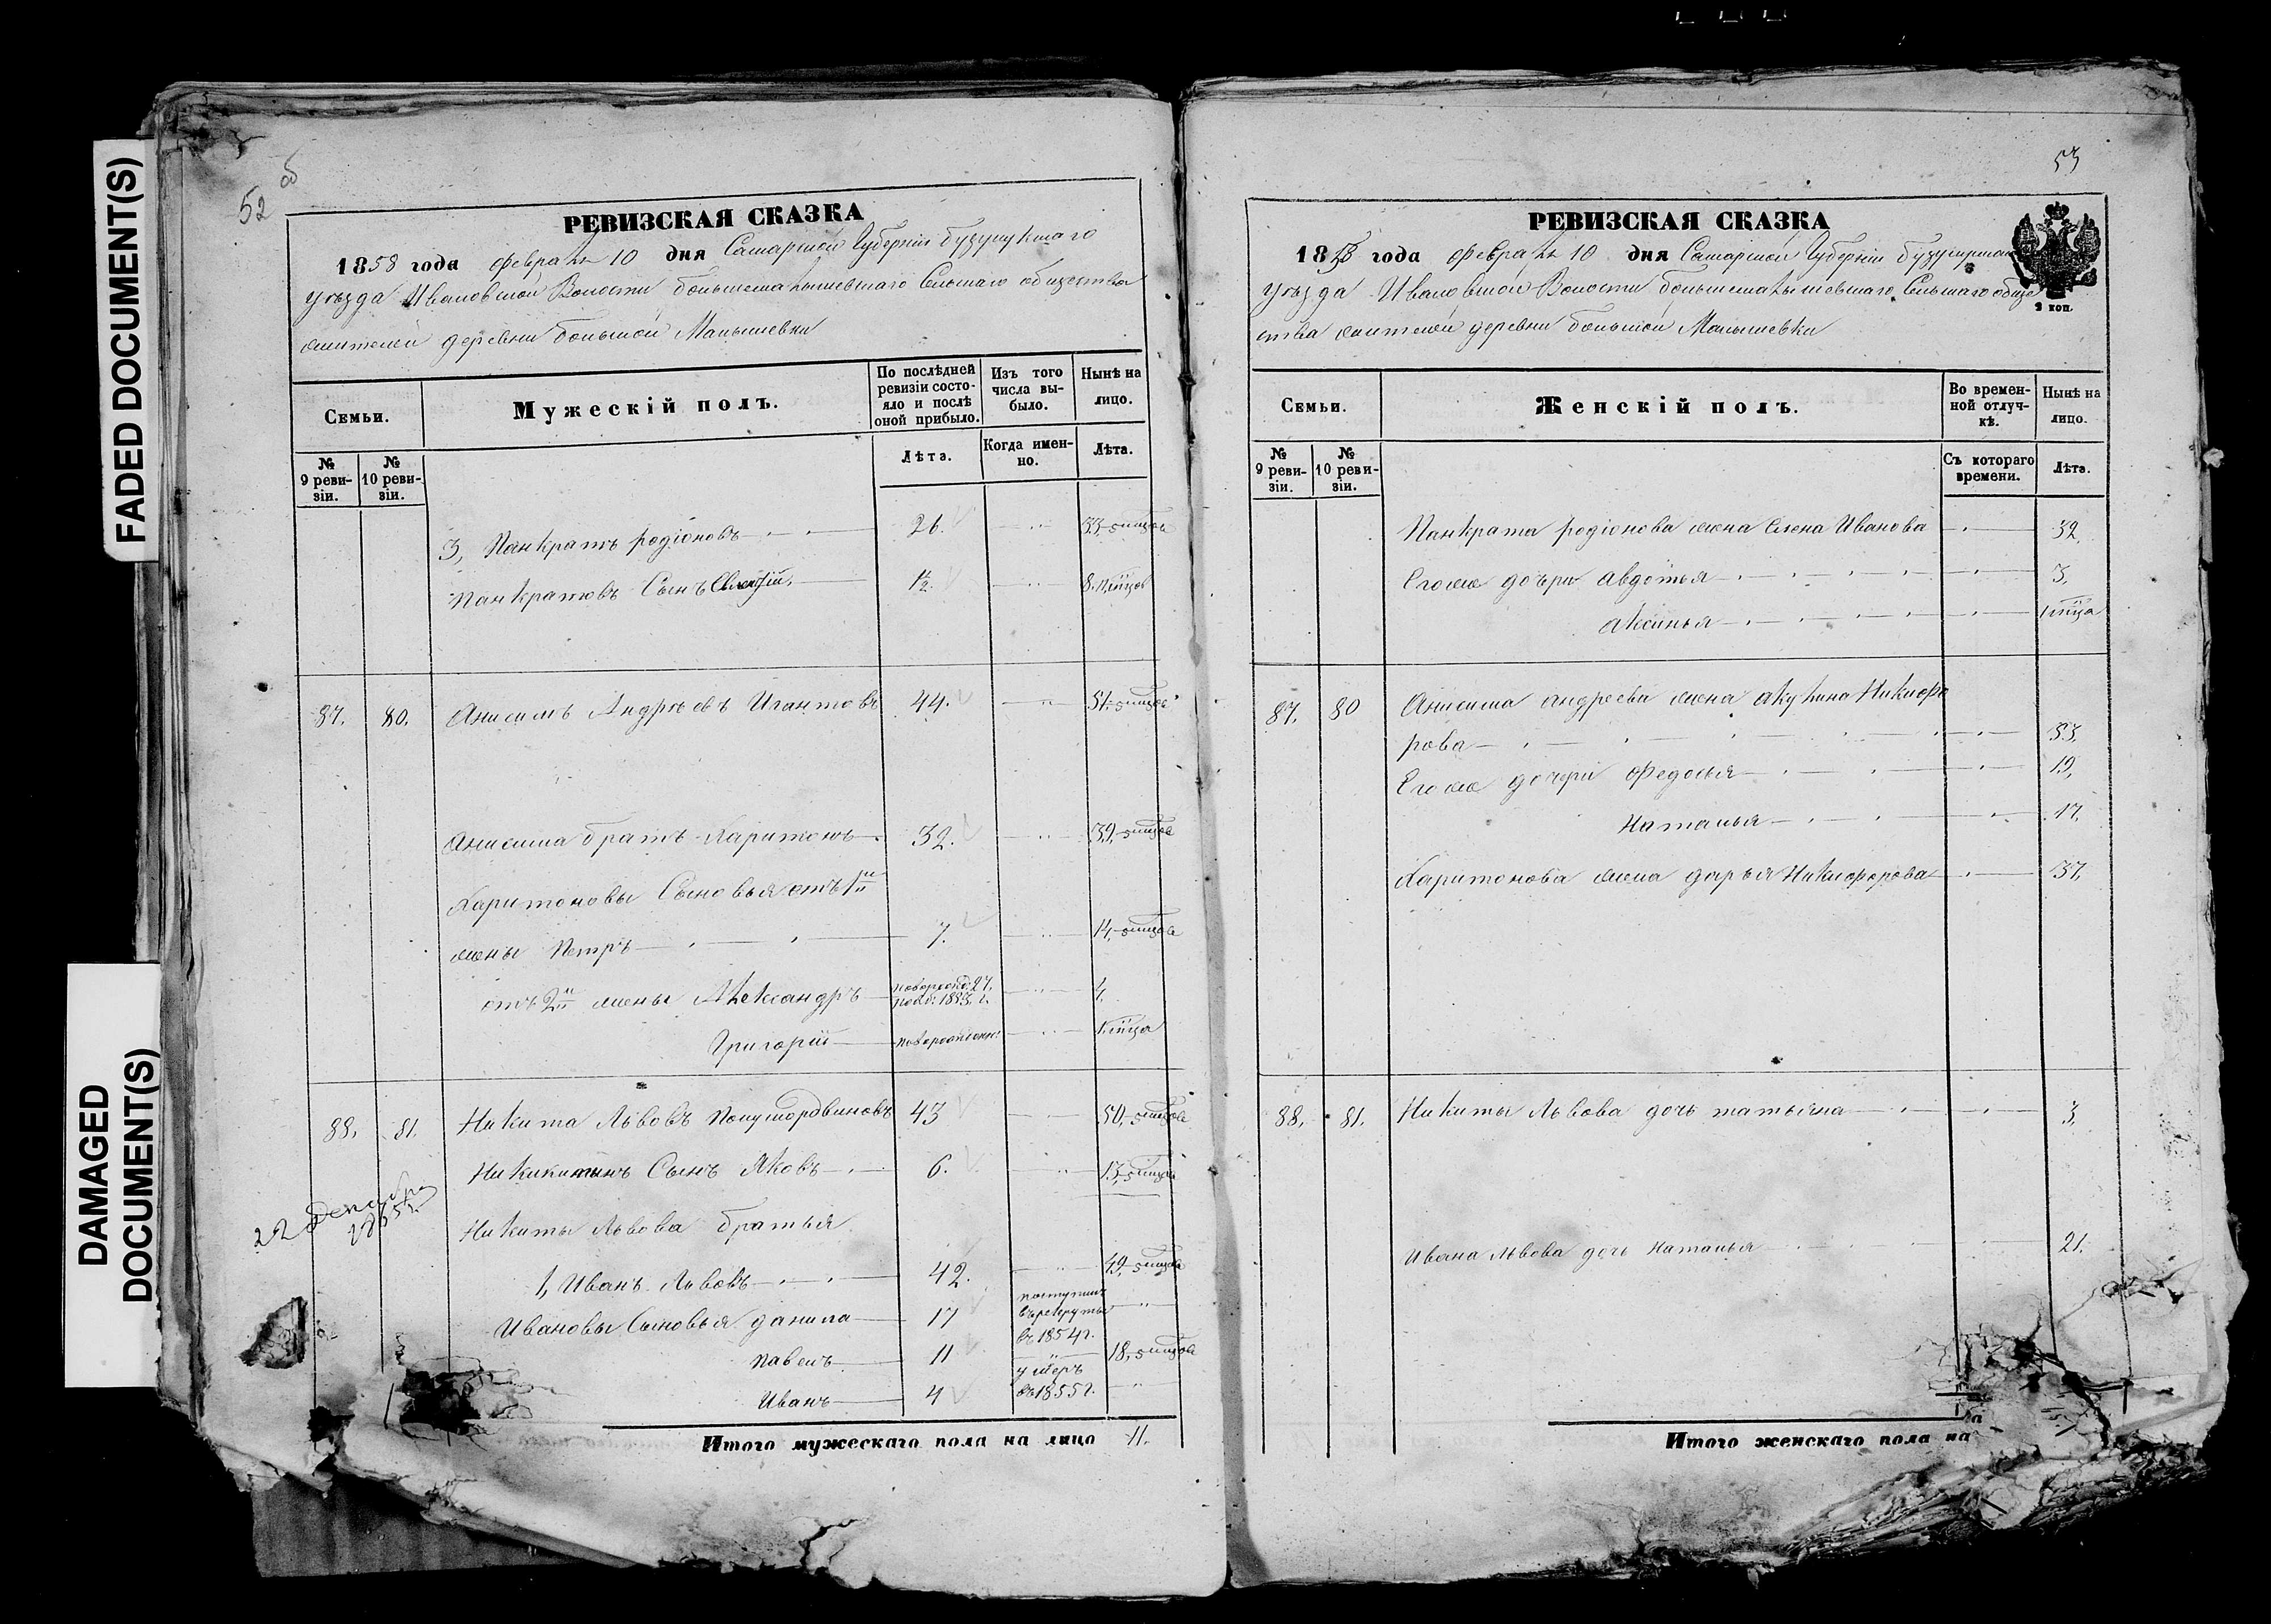 FADED DOCUMENT(S)
DAMAGED
DOCUMENT(S)
52 об
РЕВИЗСКАЯ СКАЗКА
1858 года февраля 10 дня Самарской Губерніи бузулукскаго
уѣзда Ивановской Волости большемалышевскаго Сельскаго общества
жителей деревни большой Малышевки
Семьи.
Мужескій полъ.
По послѣдней ревизіи состояло и послѣ оной прибыло.
Изъ того числа выбыло.
Нынѣ на лицо.
№ 9 ревизіи.
№ 10 ревизіи.
Лѣта.
Когда именно.
Лѣта.
3, Панкратъ родіоновъ 26. 33
Панкратовъ Сынъ 1/2 8
87. 80. Анисимъ Андрѣевъ Игнатовъ 44. 51
Анисима братъ Харитонъ 32. 39
Харитоновы Сыновья отъ 1й
жены Петръ 7. 14
отъ 2й жены Александръ 4.
Григорій
88. 81. Никита Львовъ Полумордвиновъ 43 50
Сынъ Яковъ 6. 13
22 декабря
Никиты Львова братья
1, Иванъ Львовъ 42. 49
Ивановы Сыновья данила 17 поступилъ въ рекруты въ 1854 г.
павелъ 11 18
Иванъ 4 умеръ въ 1855 г.
Итого мужескаго пола на лицо 11.
53
РЕВИЗСКАЯ СКАЗКА
1858 года февраля 10 дня Самарской Губерніи
уѣзда Ивановской Волости большемалышевскаго Сельскаго обще
ства жителей деревни большой Малышевки
2 коп.
Семьи.
Женскій полъ.
Во временной отлучкѣ.
Нынѣ на лицо.
№ 9 ревизіи.
№ 10 ревизіи.
Съ котораго времени.
Лѣта.
Панкрата родіонова жена Елена Иванова 32
Его же дочери авдотья 3,
аксинья
87. 80 Анисима андреева жена акулина Никифо
рова 53,
Его же дочери федосья 19,
Наталья 17.
Харитонова жена дарья Никифорова 37,
88. 81. Никиты Львова дочь татьяна 3,
Ивана Львова дочь наталья 21.
Итого женскаго пола на